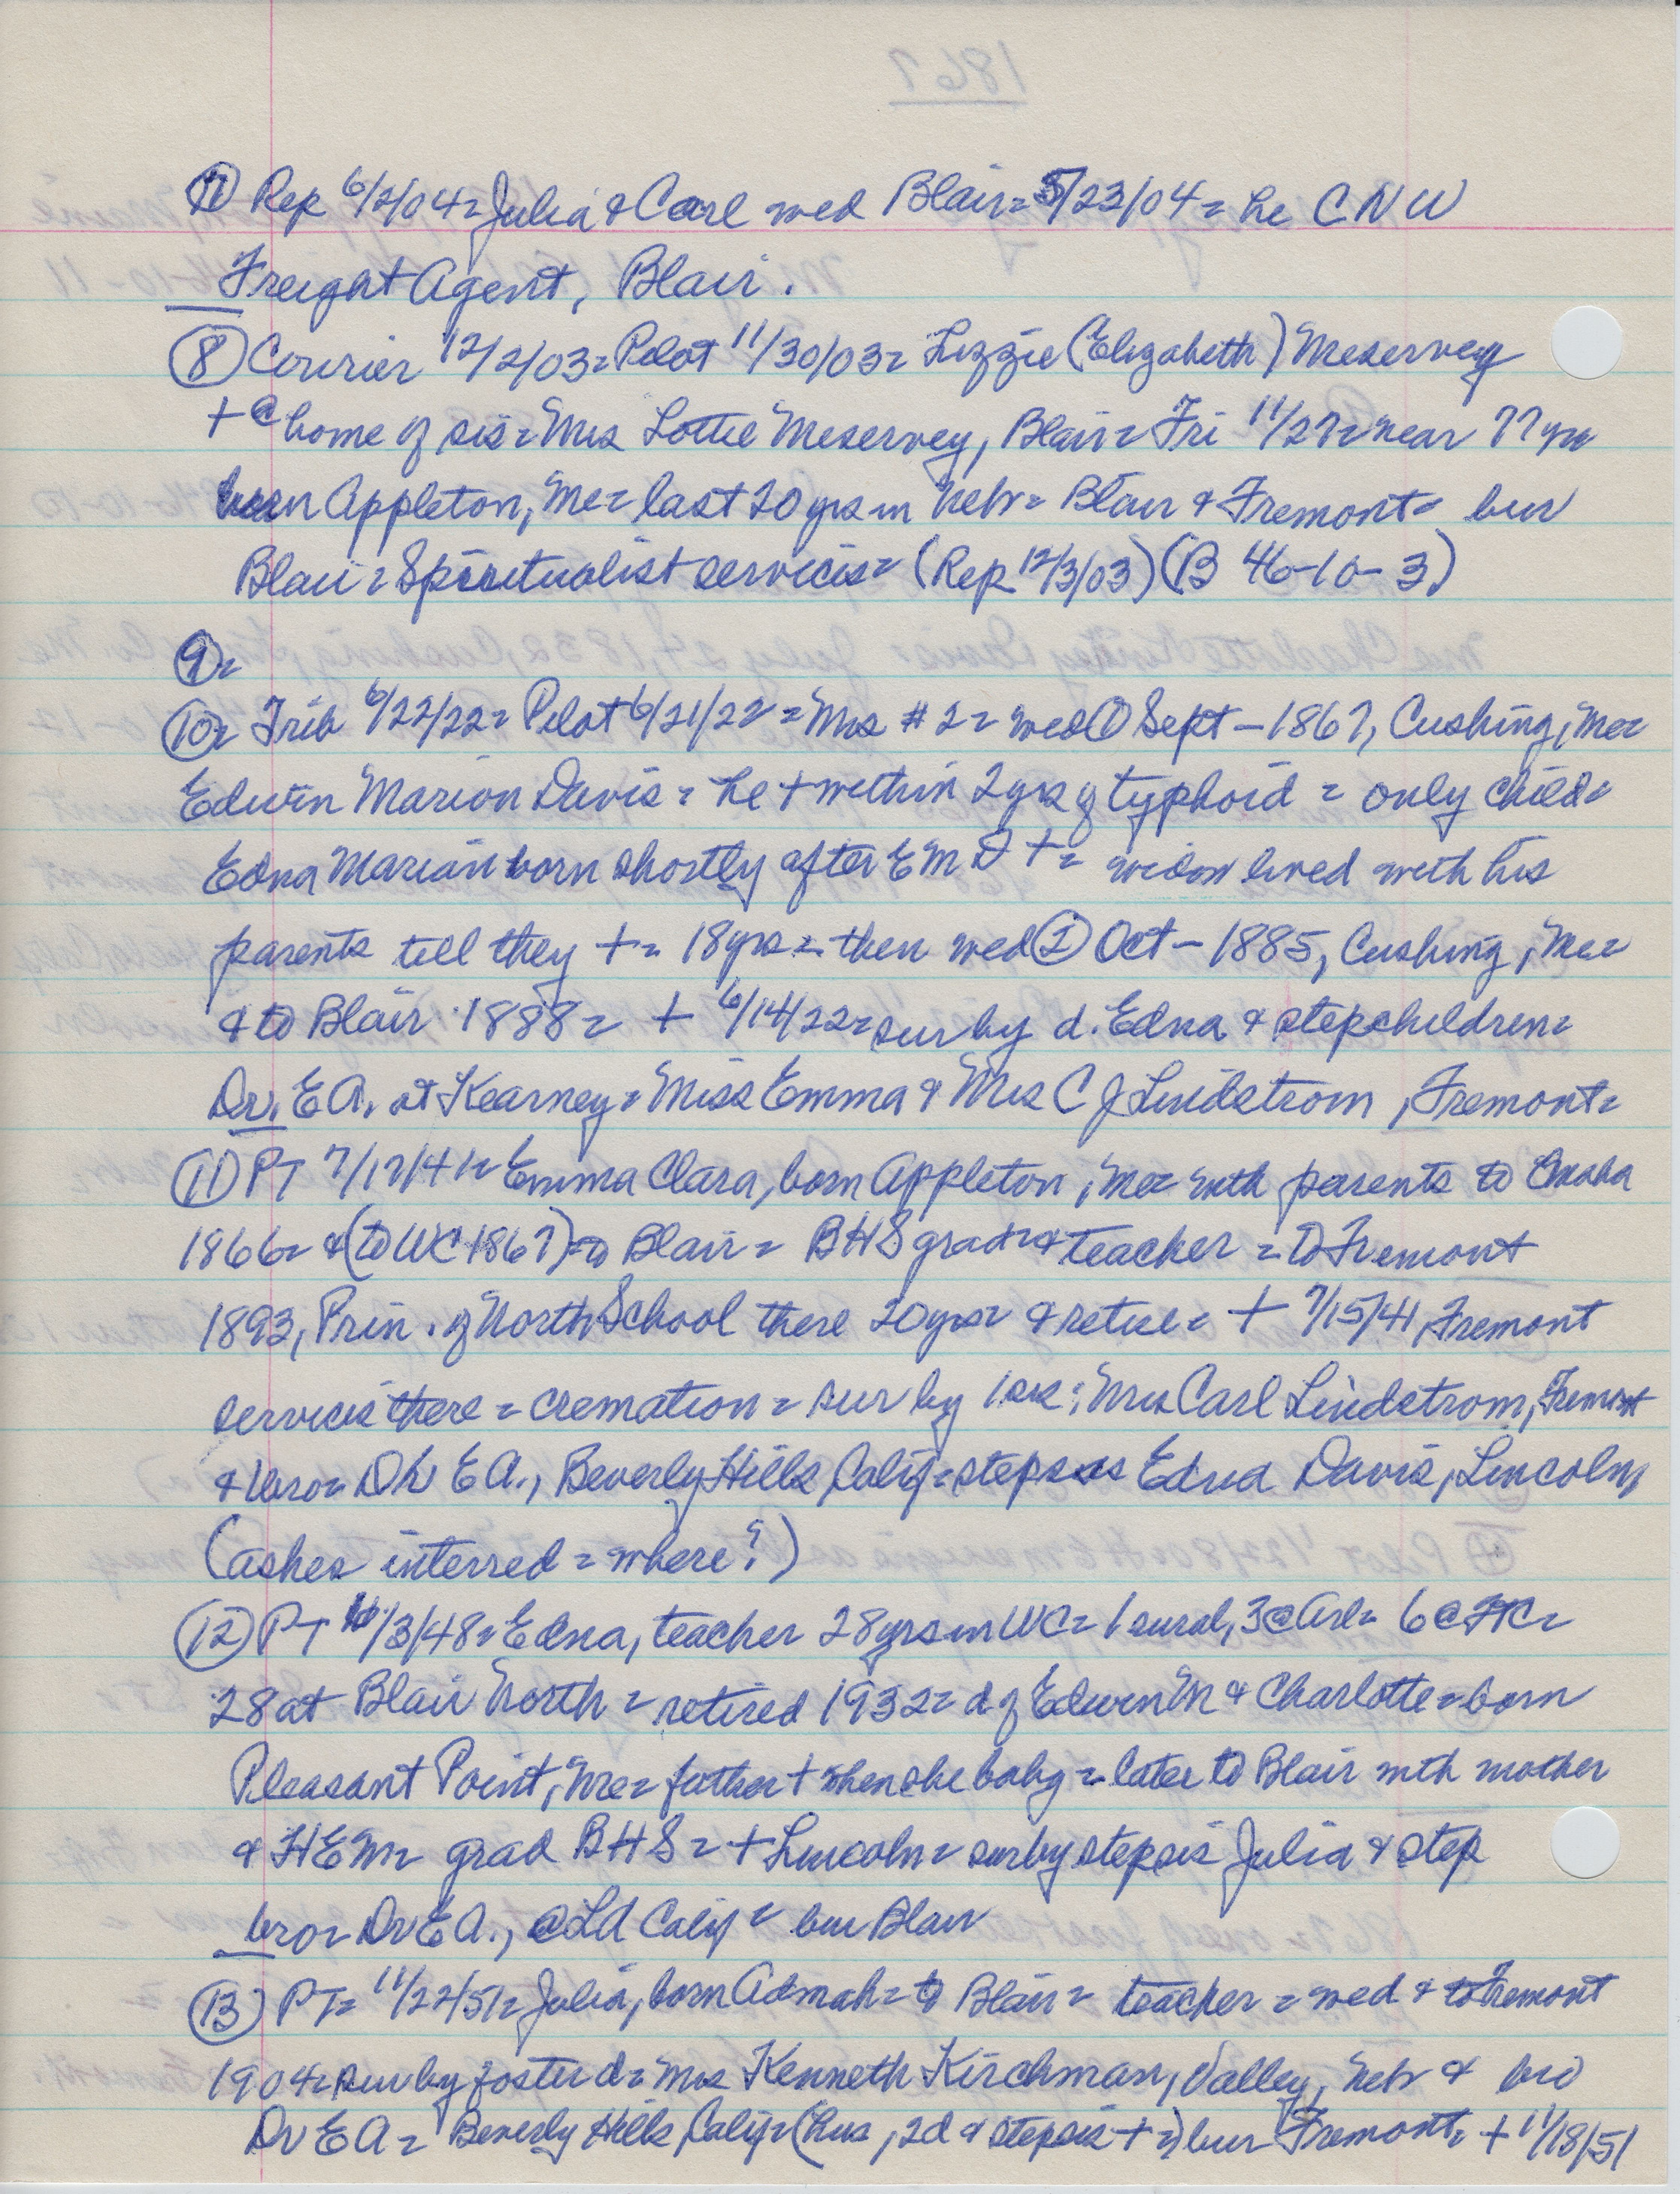 ⑪ Rep 6/2/04 = Julia & Carl wed Blair = 5/23/04 = he C N W
Freight Agent, Blair.
⑧ Courier 12/2/03 = Pilot 11/30/03 = Lizzie (Elizabeth) Meservey
+ @ home of sis = Mrs Lottie Meservey, Blair = Fri 11/27 = near 77 yrs
born Appleton, Me = last 20 yrs in Nebr = Blair & Fremont = bur
Blair = Spiritualist services = (Rep 12/3/03) (B 46-10-3)
⑨ =
⑩ = Trib 6/22/22 = Pilot 6/21/22 = Mrs #2 = wed ① Sept - 1867, Cushing, Me =
Edwin Marion Davis = he + within 2 yrs of typhoid = only child =
Edna Marian born shortly after E M D + = widow lived with his
parents till they + = 18 yrs = then wed ② Oct - 1885, Cushing, Me =
& to Blair 1888 = + 6/14/22 = sur by d. Edna & stepchildren =
Dr. E A. at Kearney = Miss Emma & Mrs C J Lindstrom, Fremont =
⑪ PT 7/17/41 = Emma Clara, born Appleton, Me = with parents to Omaha
1866 = & (to WC 1867) = to Blair = BHS grad = & teacher = to Fremont
1893, Prin. of North School there 20 yrs = & retire = + 7/15/41, Fremont
services there = cremation = sur by 1 sis: Mrs Carl Lindstrom, Fremont
& bro = Dr E A., Beverly Hills, Calif = stepsis Edna Davis, Lincoln,
(ashes interred = where?)
⑫ PT /3/48 = Edna, teacher 28 yrs in WC = 1 rural, 3 @ Arl = 6 @ FtC =
28 at Blair North = retired 1932 = d of Edwin M & Charlotte = born
Pleasant Point, Me = father + when she baby = later to Blair with mother
& H E M = grad B H S = + Lincoln = sur by stepsis Julia & step
bro = Dr E A., @ LA Calif = bur Blair
⑬ PT = 11/22/51 = Julia, born Admah = to Blair = teacher = wed & to Fremont
1904 = sur by foster d = Mrs Kenneth Kirchman, Valley, Nebr & bro
Dr E A = Beverly Hills, Calif = (hus, 2d & stepsis + =) bur Fremont = + 11/18/51